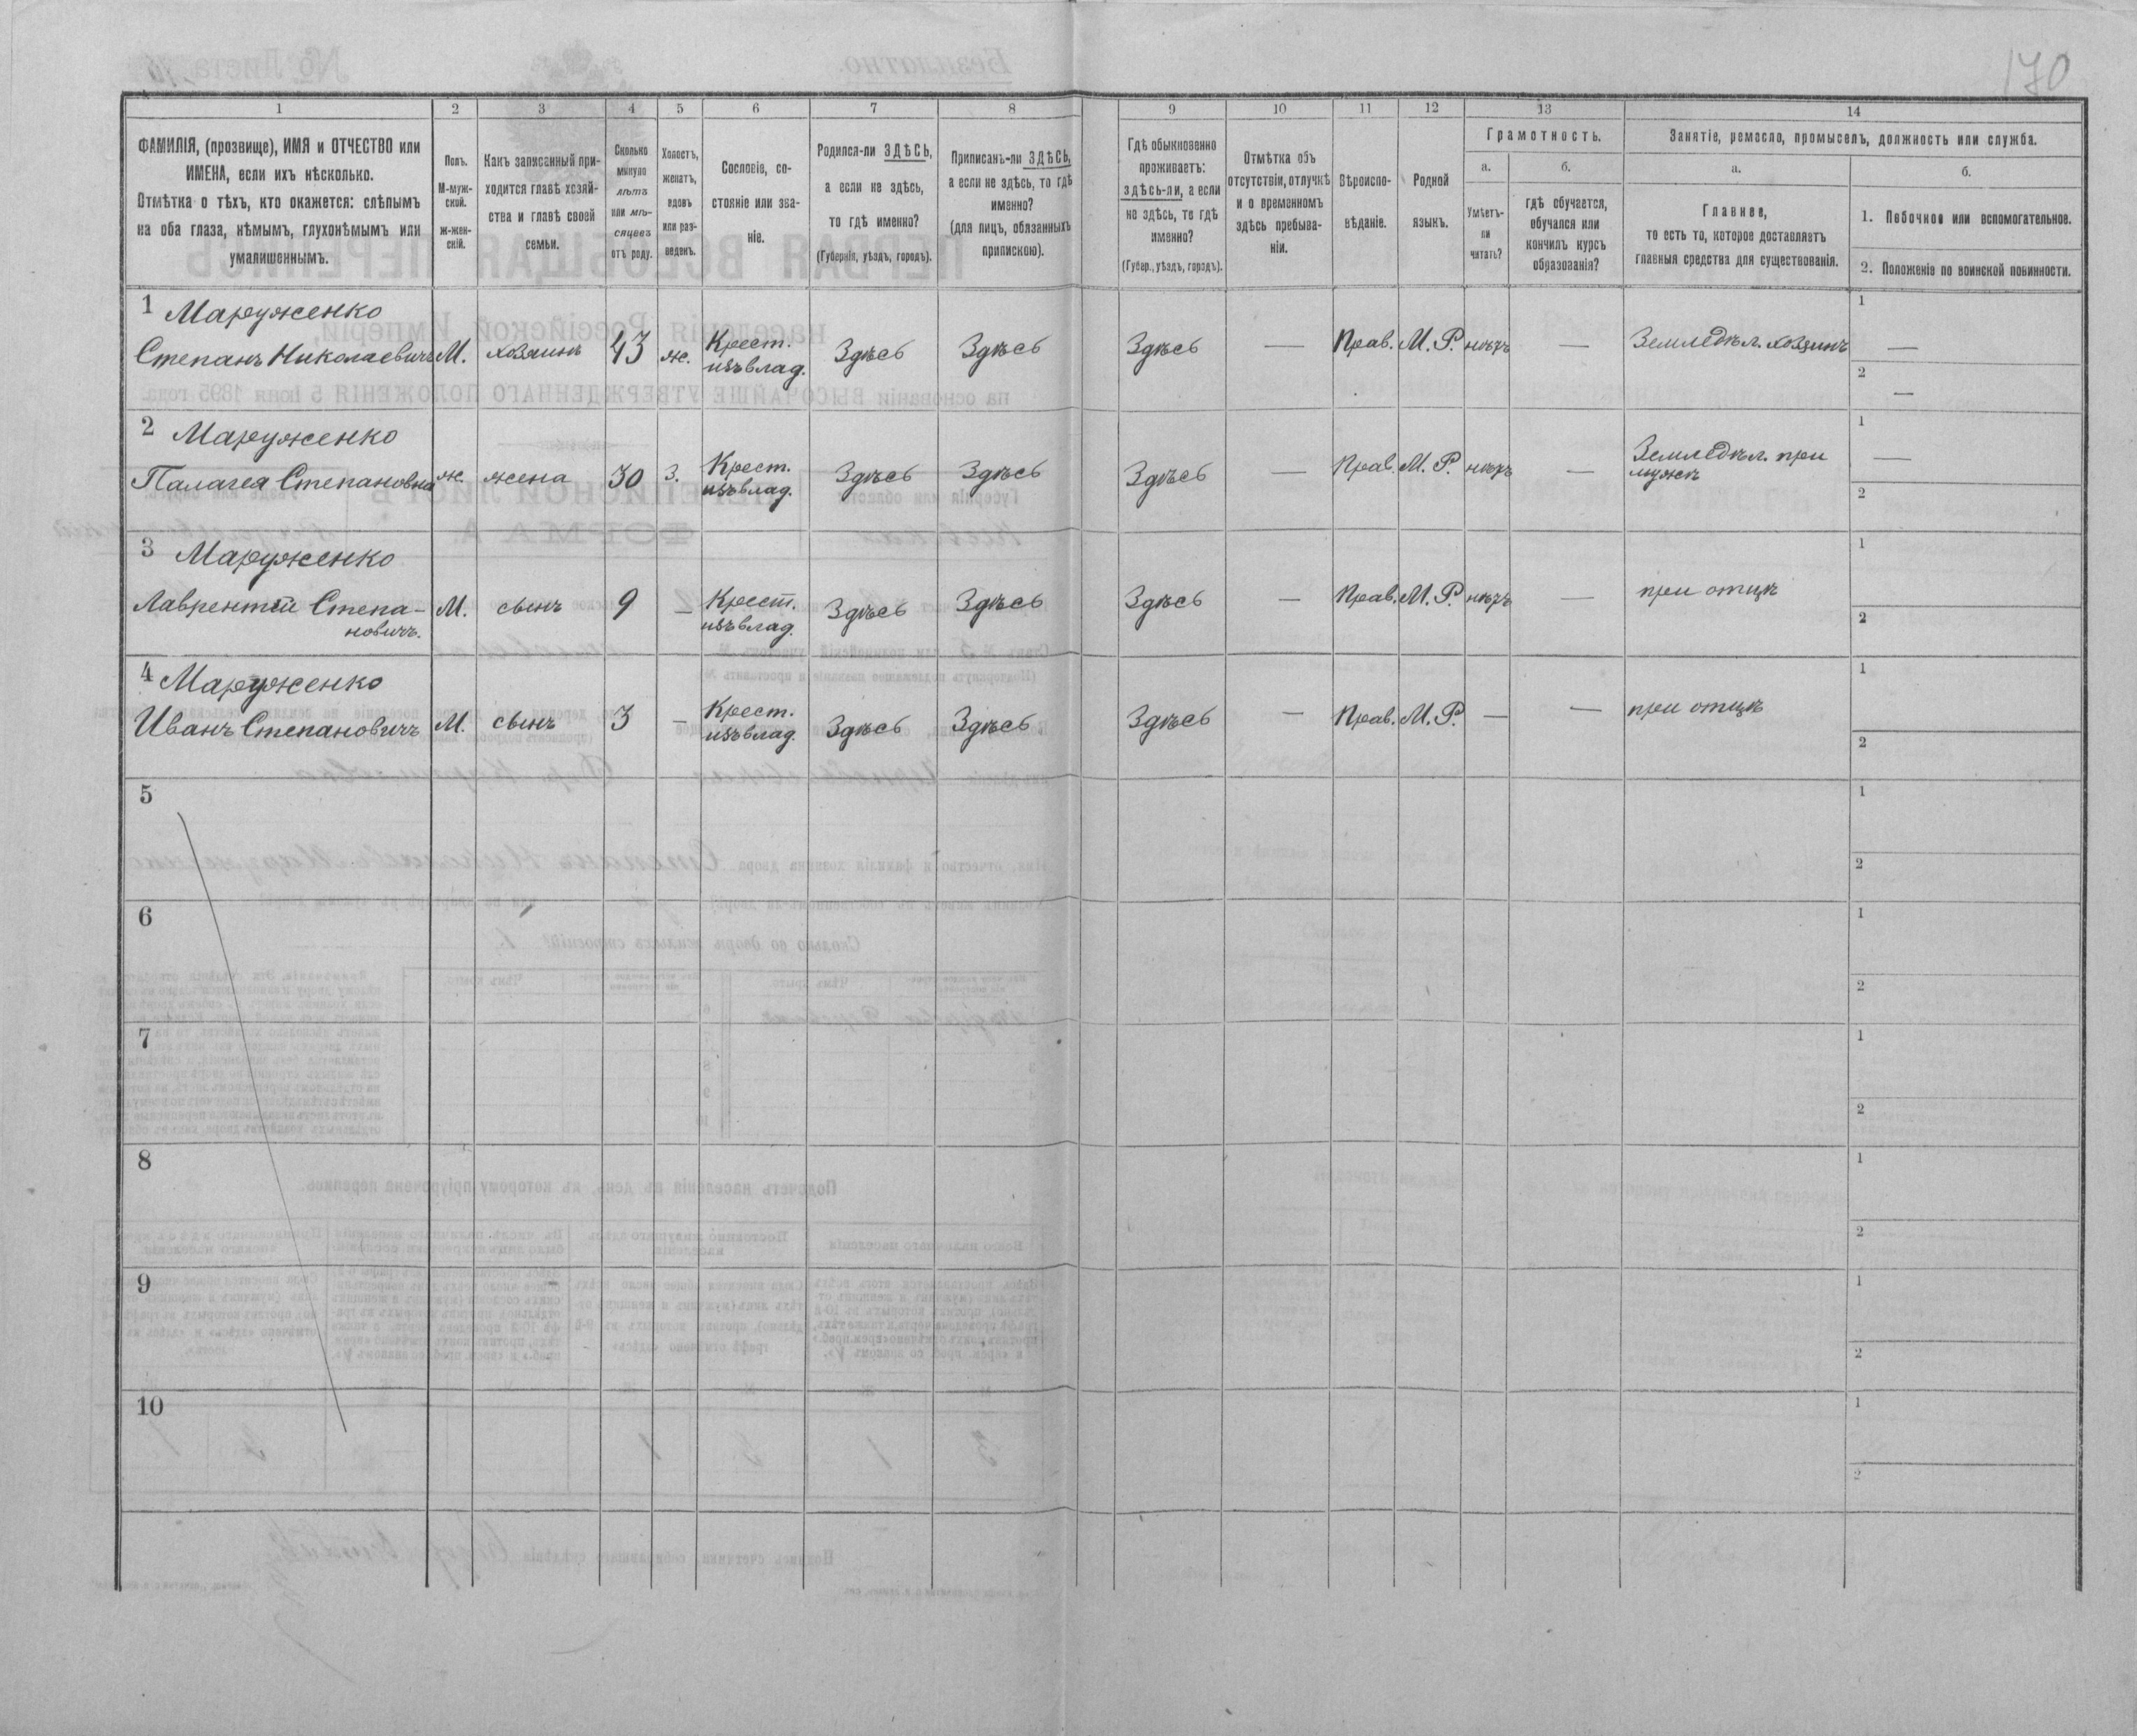 170
1
2
3
4
5
6
7
8
9
10
11
12
13
14
ФАМИЛІЯ, (прозвище), ИМЯ и ОТЧЕСТВО или
ИМЕНА, если ихъ нѣсколько.
Отмѣтка о тѣхъ, кто окажется: слѣпымъ
на оба глаза, нѣмымъ, глухонѣмымъ или
умалишеннымъ.
Полъ.
М-муж-
ской.
Ж-жен-
скій.
Какъ записанный при-
ходится главѣ хозяй-
ства и главѣ своей
семьи.
Сколько
минуло
лѣтъ
или мѣ-
сяцевъ
отъ роду.
Холостъ,
женатъ,
вдовъ
или раз-
веденъ.
Сословіе, со-
стояніе или зва-
ніе.
Родился-ли ЗДѢСЬ,
а если не здѣсь,
то гдѣ именно?
(Губернія, уѣздъ, городъ).
Приписанъ-ли ЗДѢСЬ,
а если не здѣсь, то гдѣ
именно?
(для лицъ, обязанныхъ
припискою).
Гдѣ обыкновенно
проживаетъ:
здѣсь-ли, а если
не здѣсь, то гдѣ
именно?
(Губер., уѣздъ, городъ).
Отмѣтка объ
отсутствіи, отлучкѣ
и о временномъ
здѣсь пребыва-
ніи.
Вѣроиспо-
вѣданіе.
Родной
языкъ.
Грамотность.
а.
Умѣетъ-
ли
читать?
б.
гдѣ обучается,
обучался или
кончилъ курсъ
образованія?
Занятіе, ремесло, промыселъ, должность или служба.
а.
Главное,
то есть то, которое доставляетъ
главныя средства для существованія.
б.
1. Побочное или вспомогательное.
2. Положеніе по воинской повинности.
1 Маруженко
Степанъ Николаевичъ М. хозяинъ 43 ж. Крест. изъ влад. Здѣсь Здѣсь Здѣсь — Прав. М. Р. нѣтъ — Земледѣл. хозяинъ 1 —
2 —
2 Маруженко
Палагея Степановна ж. жена 30 з. Крест. изъ влад. Здѣсь Здѣсь Здѣсь — Прав. М. Р. нѣтъ — Земледѣл. при мужѣ 1 —
2
3 Маруженко
Лаврентій Степа-
новичъ. М. сынъ 9 — Крест. изъ влад. Здѣсь Здѣсь Здѣсь — Прав. М. Р. нѣтъ — при отцѣ 1
2
4 Маруженко
Иванъ Степановичъ М. сынъ 3 — Крест. изъ влад. Здѣсь Здѣсь Здѣсь — Прав. М. Р. — — при отцѣ 1
2
5 1
2
6 1
2
7 1
2
8 1
2
9 1
2
10 1
2